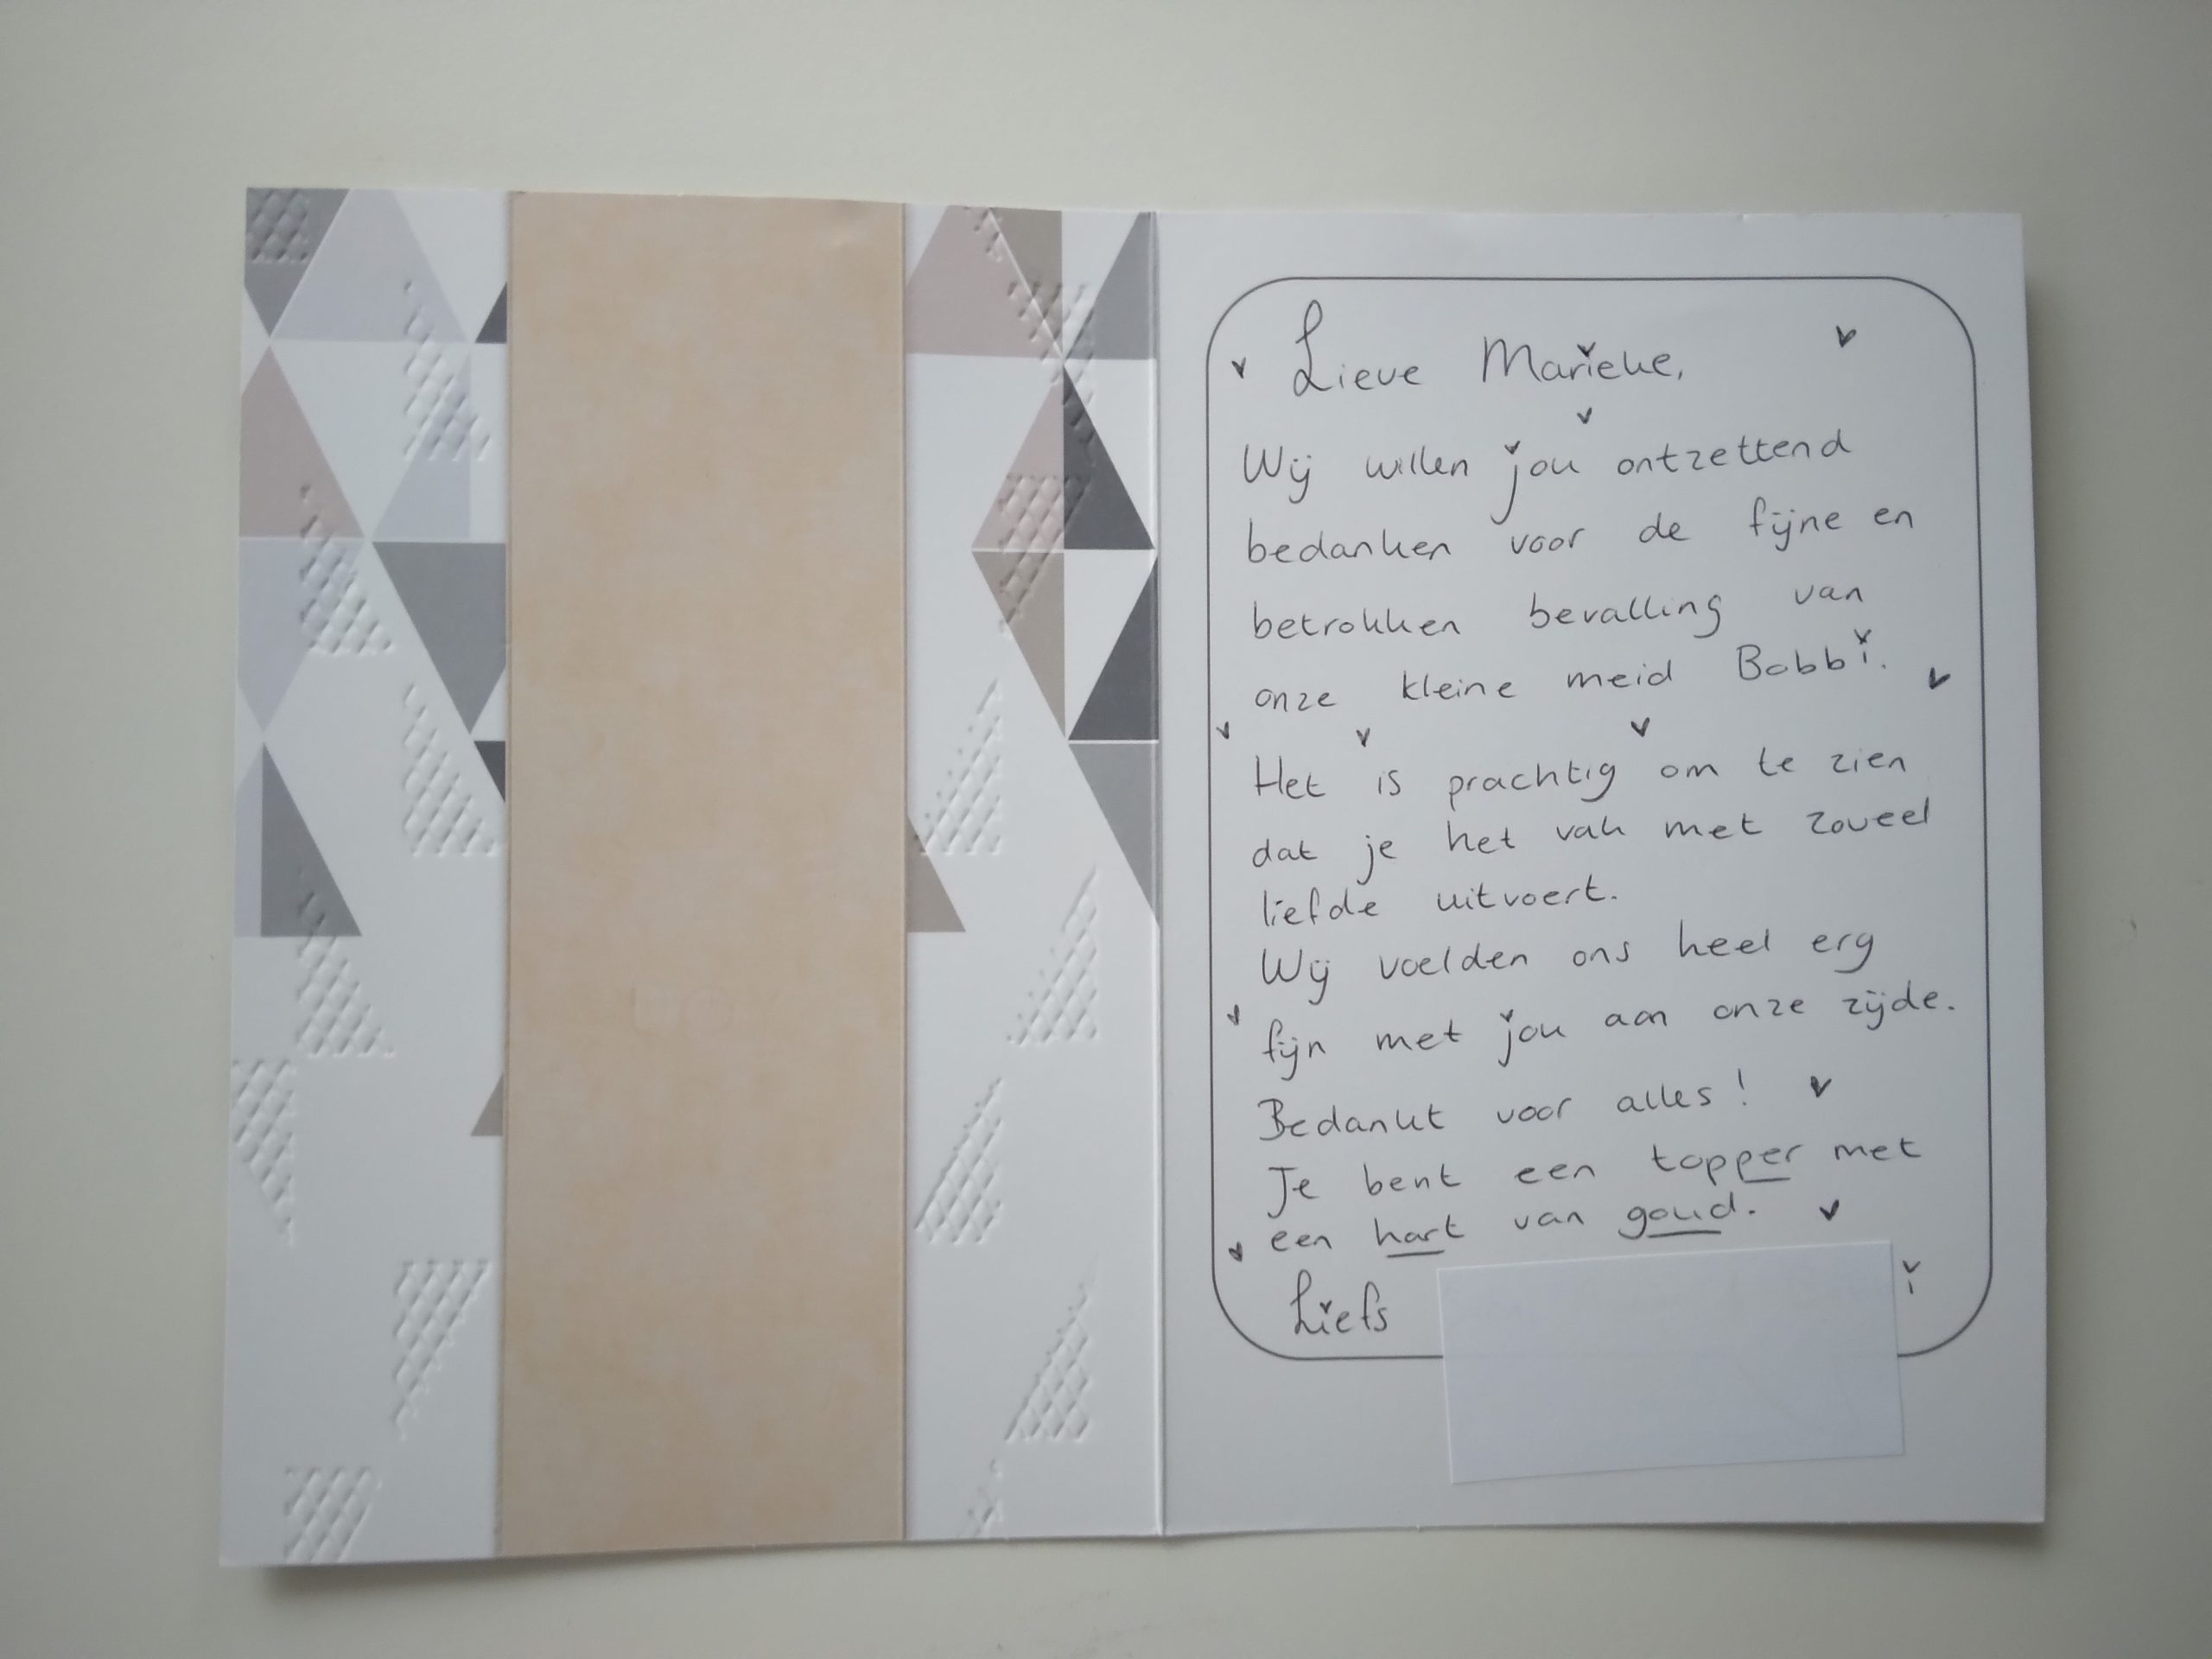 Lieve Marieke,
Wij willen jou ontzettend
bedanken voor de fijne en
betrokken bevalling van
onze kleine meid Bobbi.
Het is prachtig om te zien
dat je het vak met zoveel
liefde uitvoert.
Wij voelden ons heel erg
fijn met jou aan onze zijde.
Bedankt voor alles!
Je bent een topper met
een hart van goud.
Liefs